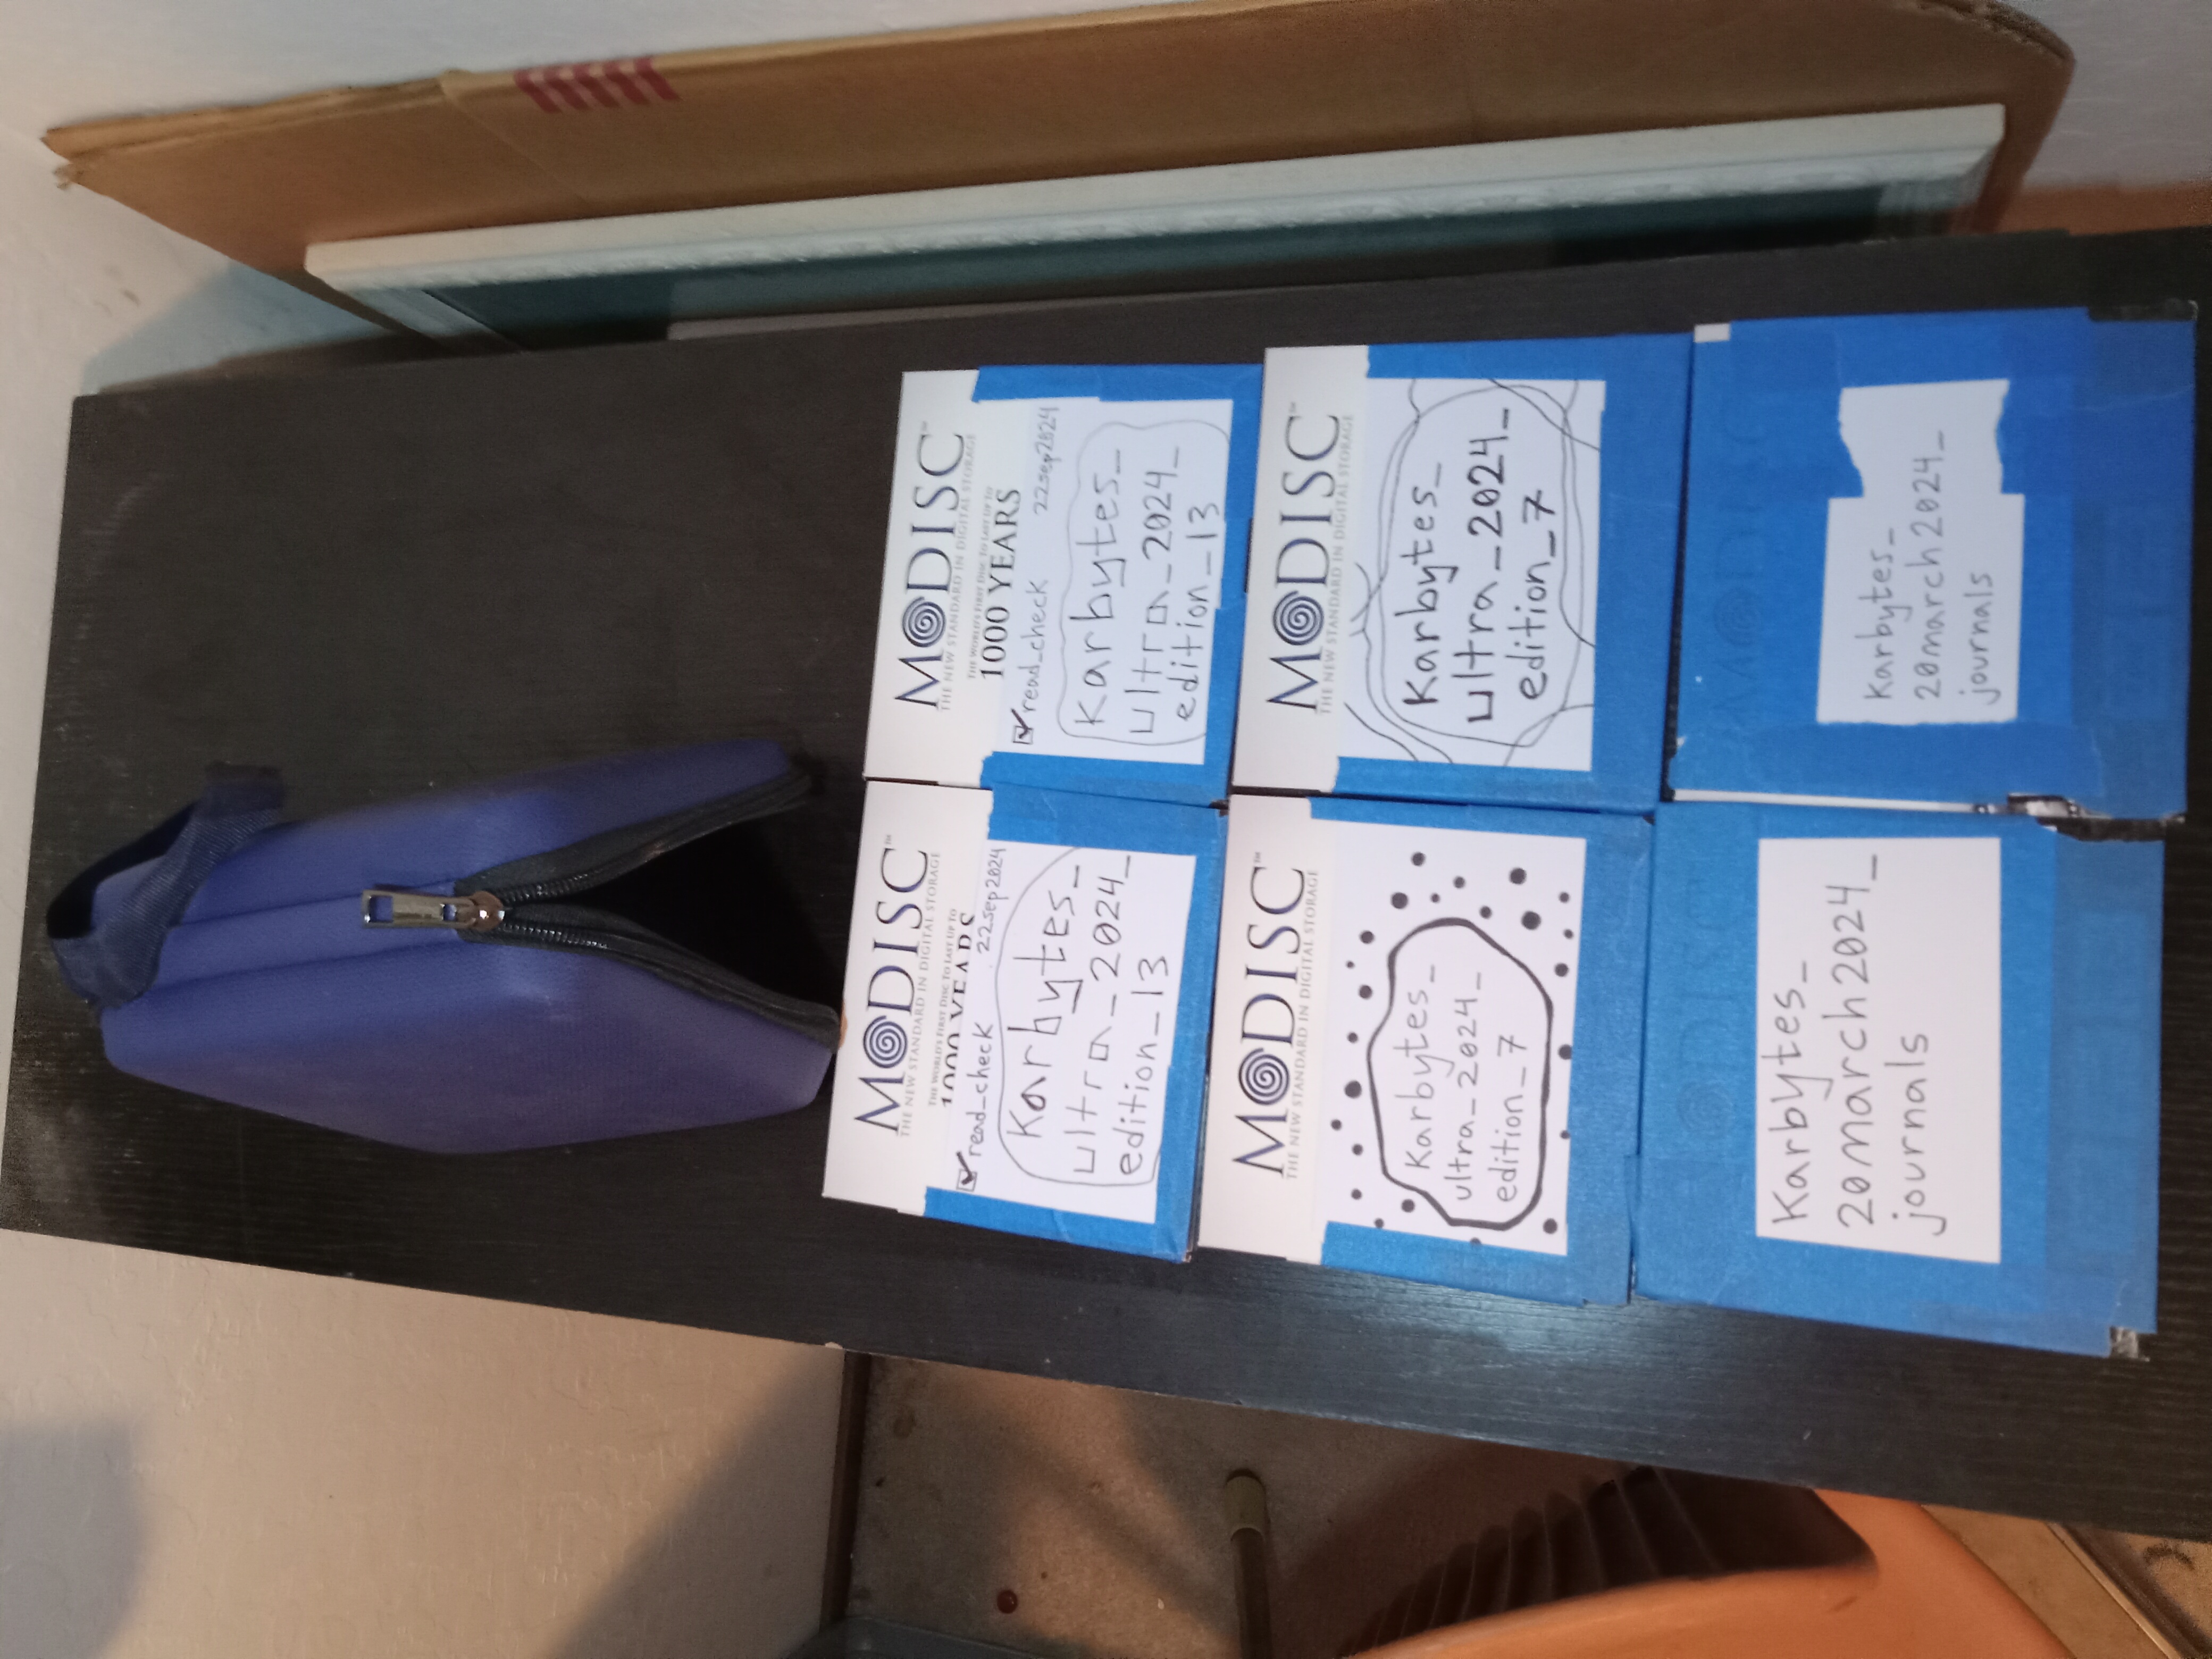 M DISC™
THE NEW STANDARD IN DIGITAL STORAGE
THE WORLD'S FIRST DISC TO LAST UP TO
1000 YEARS
read_check 22sep2024
Karbytes_
ultra_2024_
edition_13
M DISC™
THE NEW STANDARD IN DIGITAL STORAGE
THE WORLD'S FIRST DISC TO LAST UP TO
1000 YEARS
read_check 22sep2024
Karbytes_
ultra_2024_
edition_13
M DISC™
THE NEW STANDARD IN DIGITAL STORAGE
Karbytes_
ultra_2024_
edition_7
M DISC™
THE NEW STANDARD IN DIGITAL STORAGE
Karbytes_
ultra_2024_
edition_7
DISC
Karbytes_
20march2024_
journals
M DISC
Karbytes_
20march2024_
journals